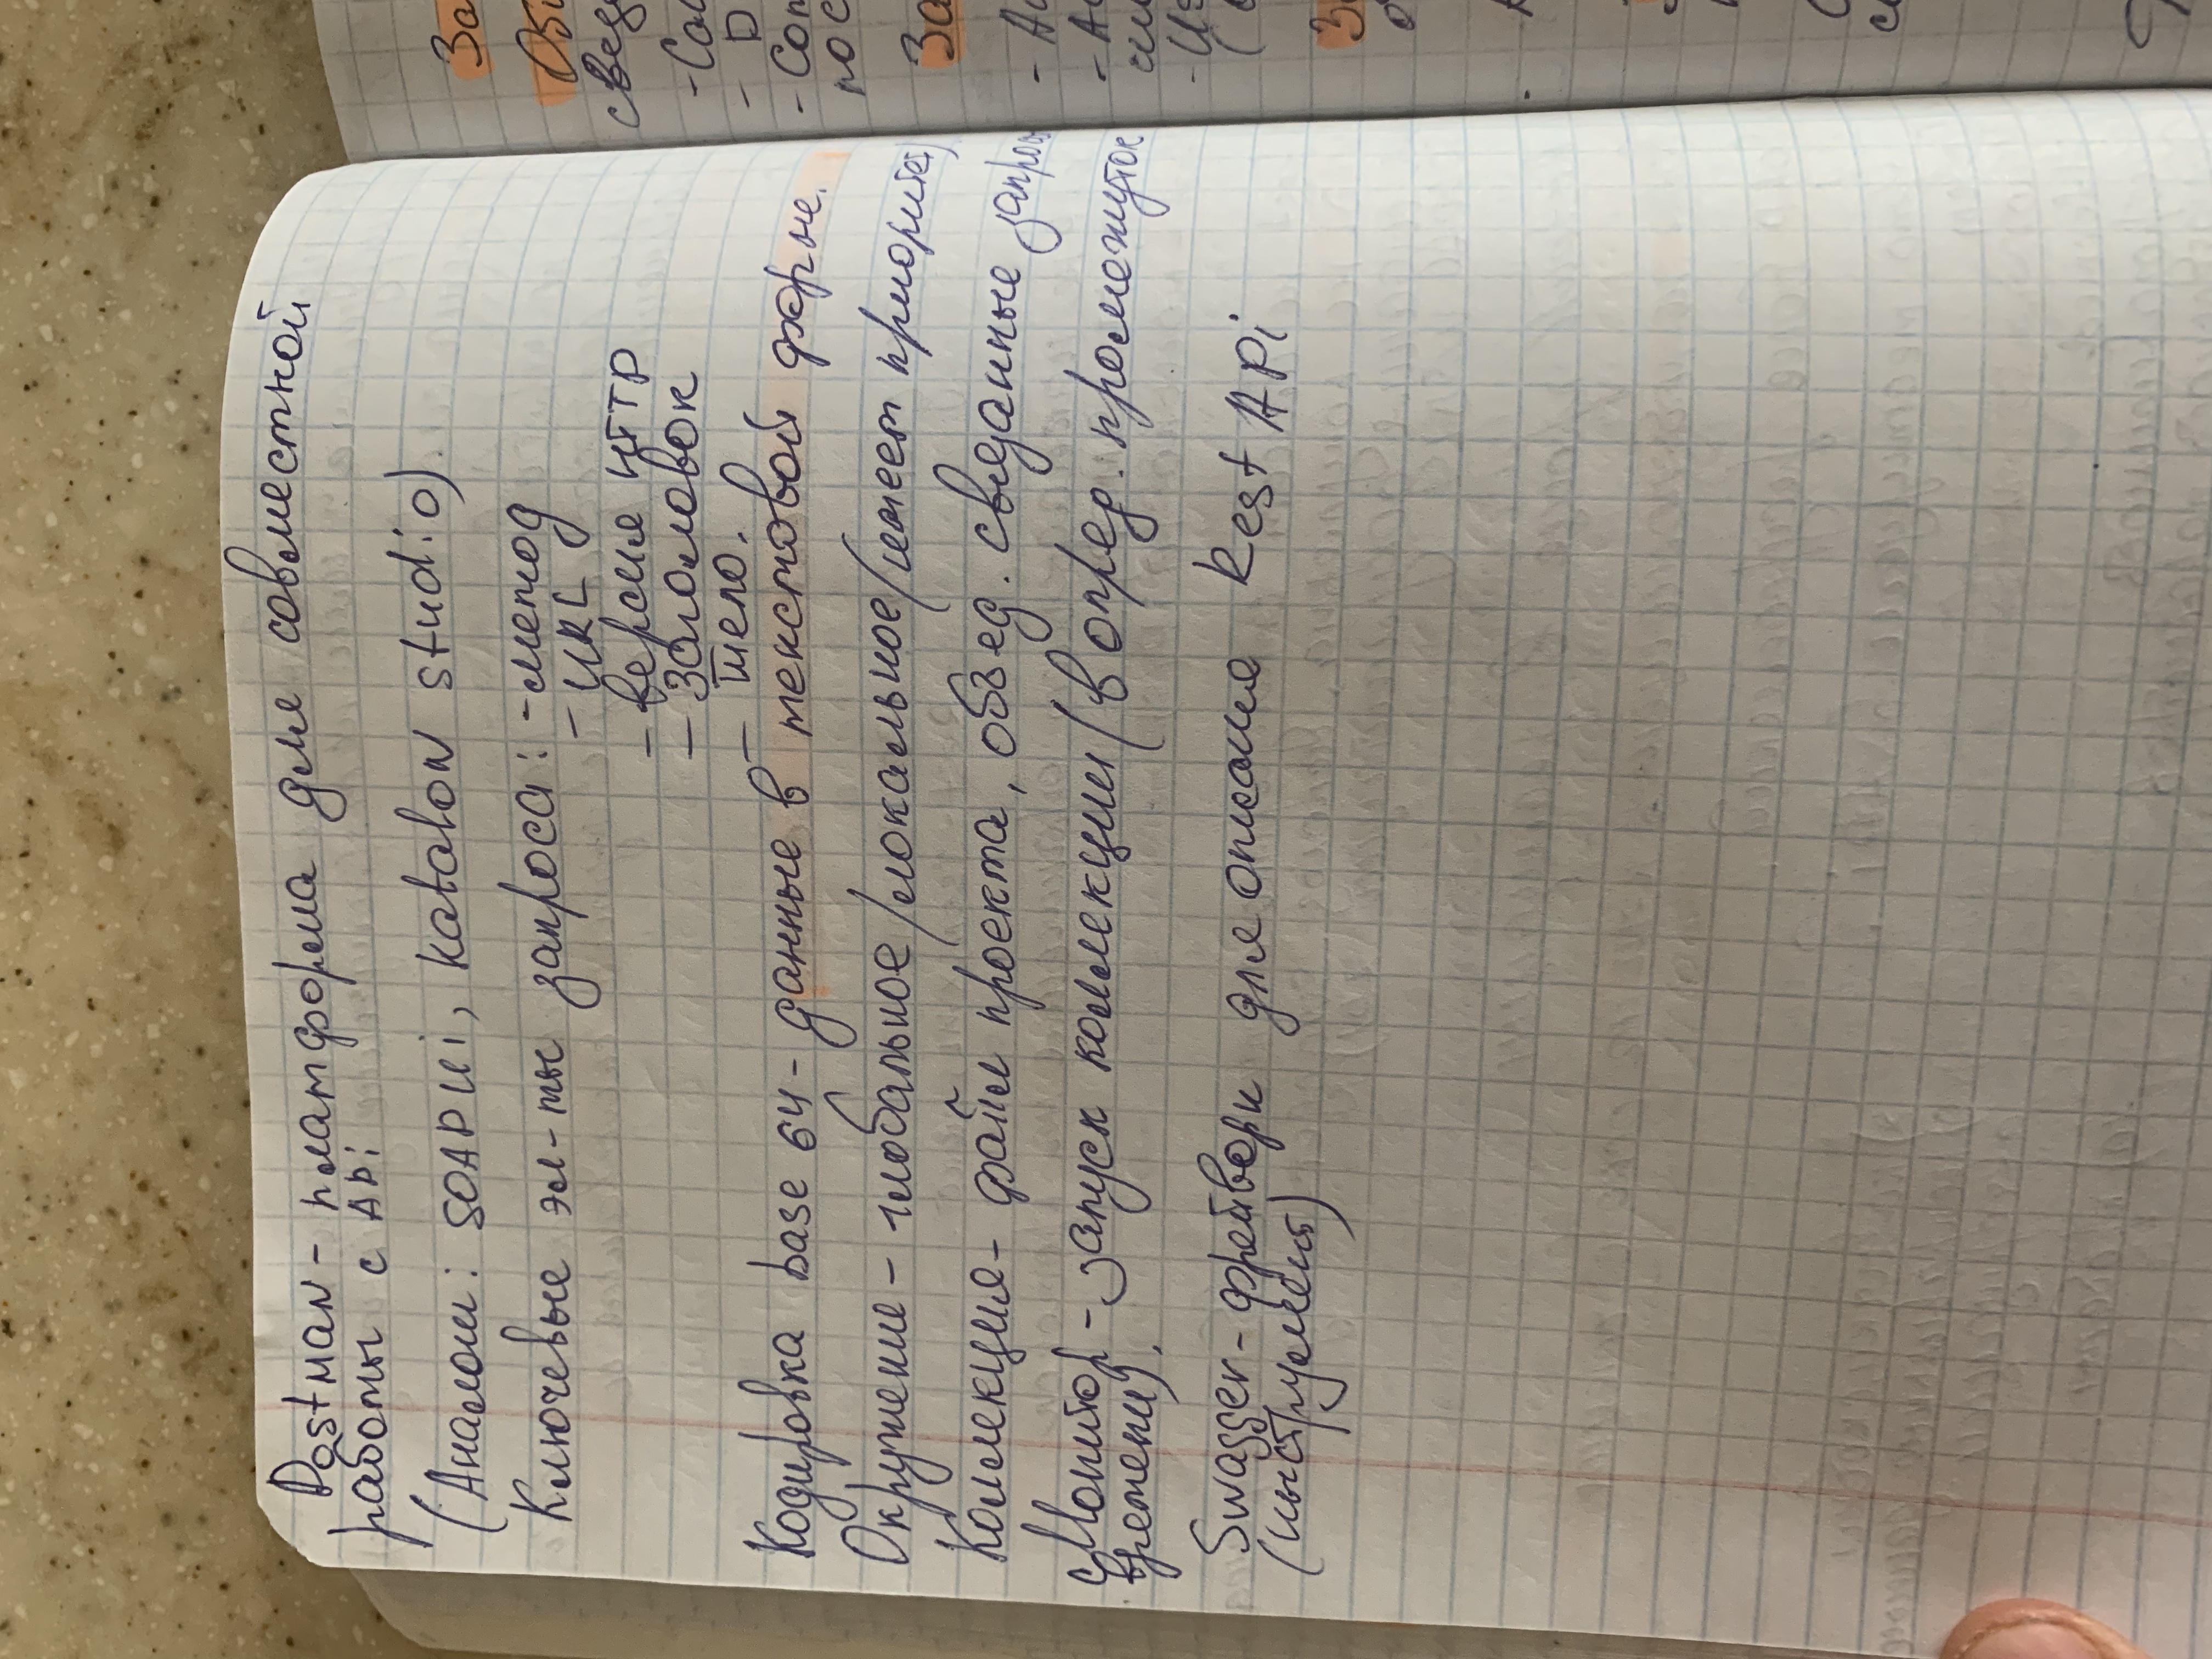 Postman - платформа для совместной
работы с API
(Аналоги: SOAP Ui, Katalon Studio).
Ключевые эл-ты запроса: - метод
- URL
- версия HTTP
- Заголовок
- тело.
Кодировка base 64 - данные в текстовой форме.
Окружение - глобальное/локальное (имеет приоритет)
Коллекция - файл проекта, объед. связанные запросы
Монитор - запуск коллекции (в опред. промежуток
времени).
Swagger - фреймворк для описания Rest API
(инструмент)
За
сведе
- Сай
- D
- Con
пос
За
- Ad
- Ad